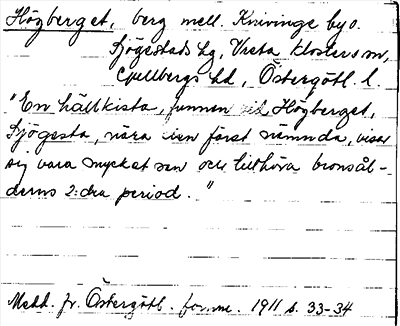 Högberget, berg mell. Knivinge by o.
Sjögestads hg, Vreta klosters sn,
Gullbergs hd, Östergötl. l.
"En hällkista, funnen vid Högberget,
Sjögesta, nära den först nämnda, visar
sig vara mycket sen och tillhöra bronsål-
derns 2:dra period."
Medd. fr. Östergötl. fornm. 1911 s. 33-34